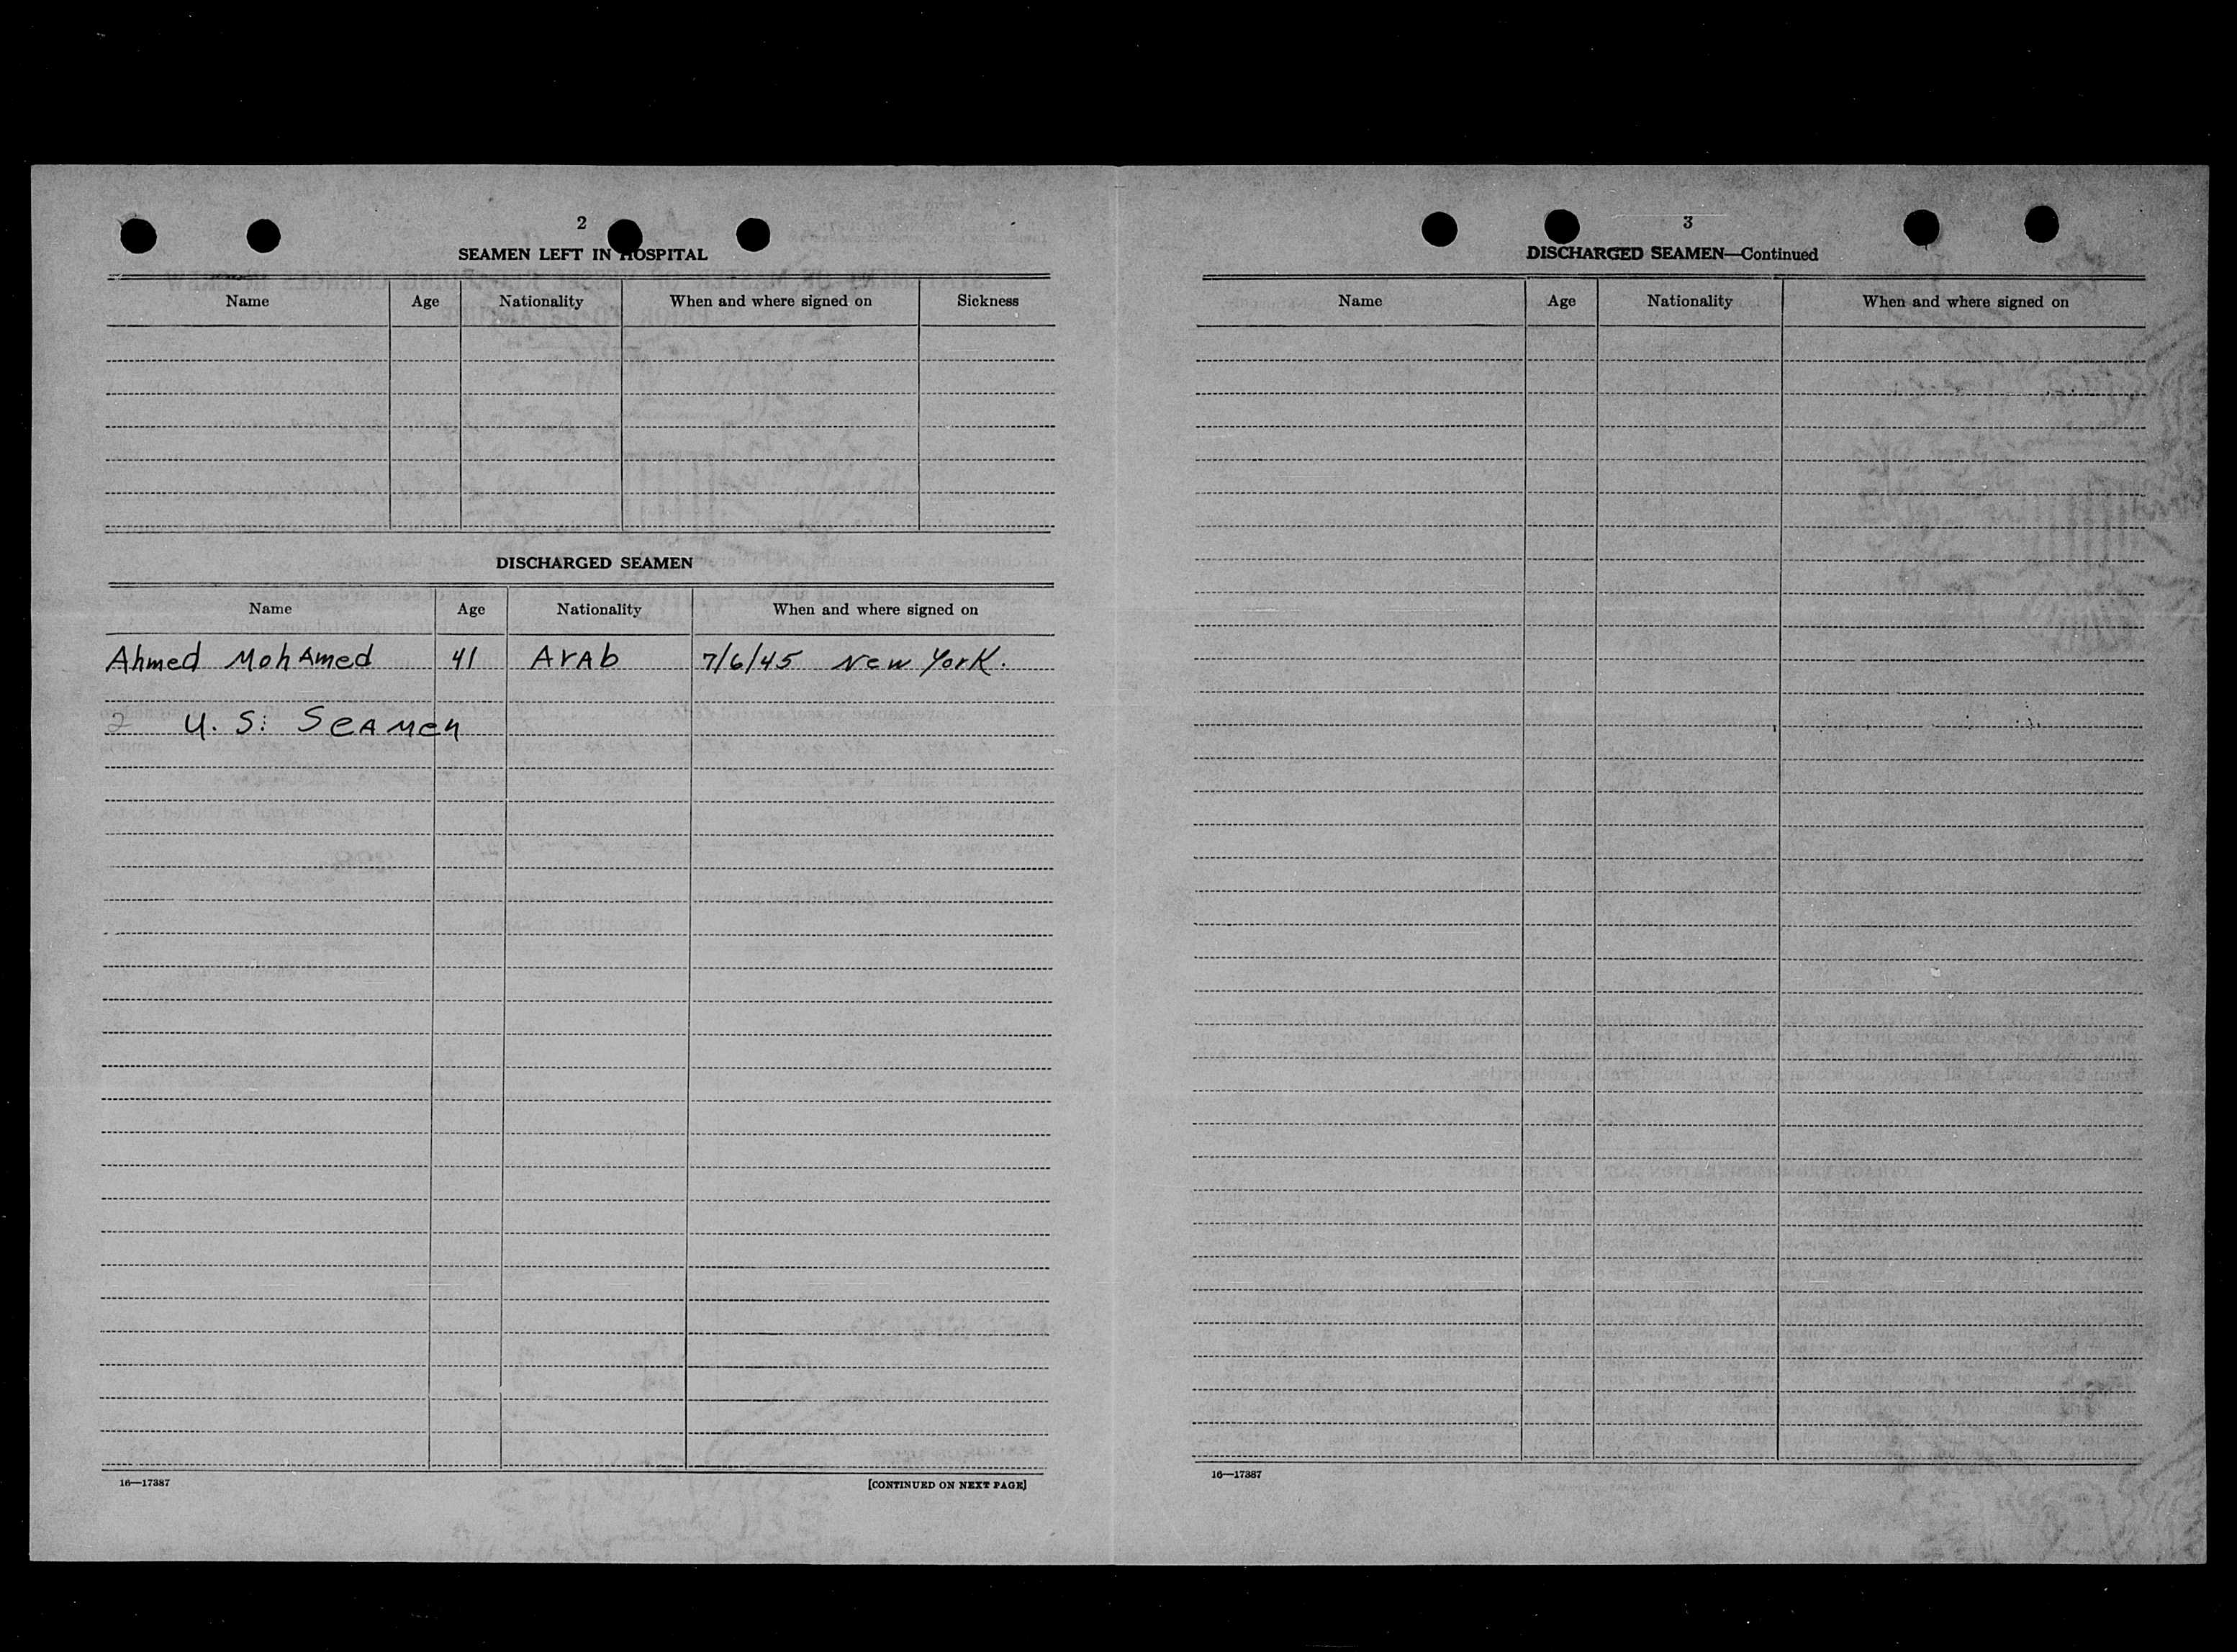 2
SEAMEN LEFT IN HOSPITAL
Name Age Nationality When and where signed on Sickness
DISCHARGED SEAMEN
Name Age Nationality When and where signed on
Ahmed Mohamed 41 Arab 7/6/45 New York.
2 U. S. Seamen
16—17387 [CONTINUED ON NEXT PAGE]
3
DISCHARGED SEAMEN—Continued
Name Age Nationality When and where signed on
16—17387